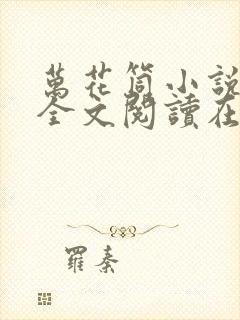 萬花筒小說
全文閱讀在
羅秦